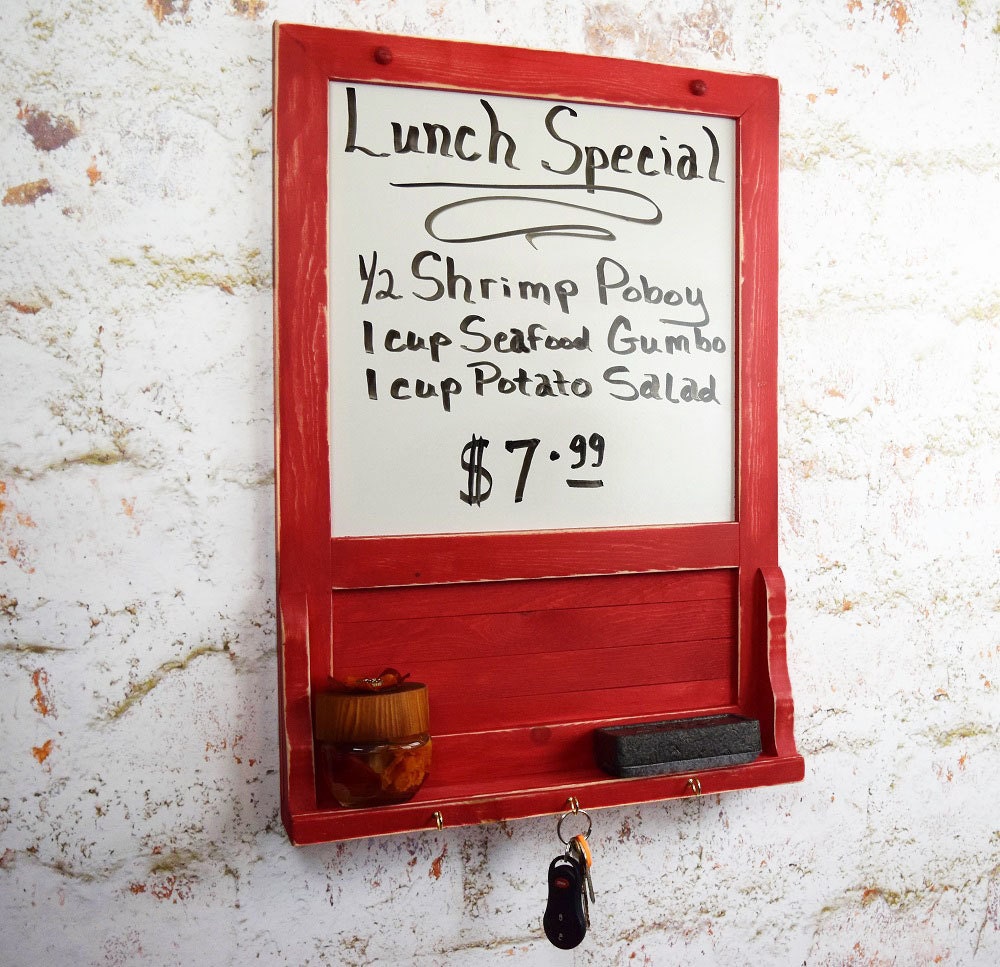 Lunch Special
1/2 Shrimp Poboy
1 cup Seafood Gumbo
1 cup Potato Salad
$7.99